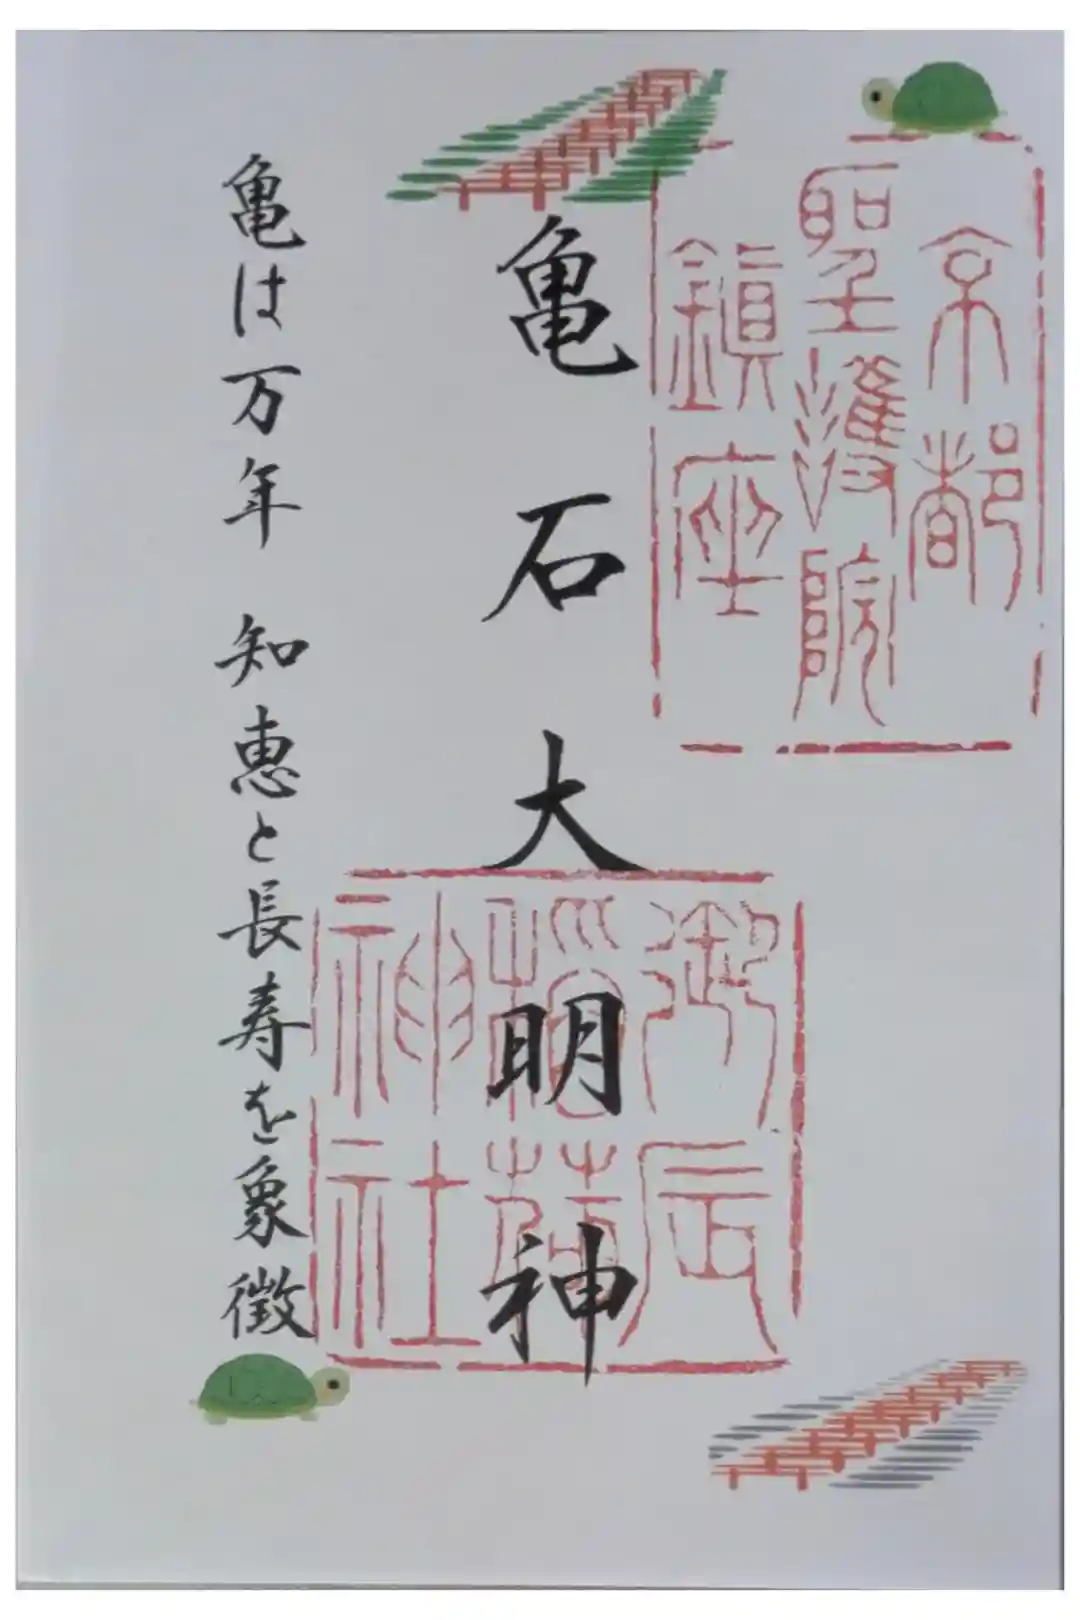 京都
聖護院
鎮座
亀石大明神
御辰
稲荷
神社
亀は万年　知恵と長寿を象徴